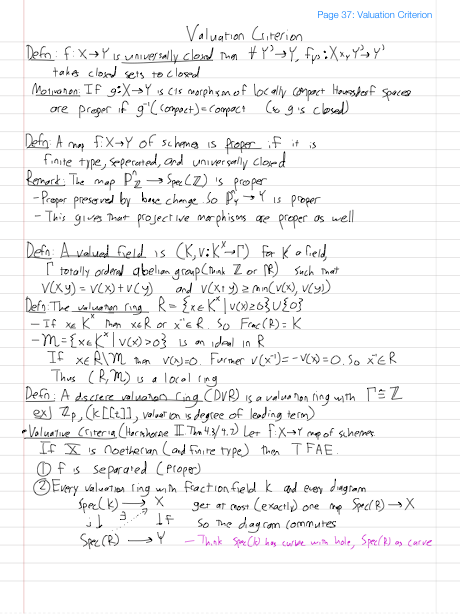 Page 37: Valuation Criterion
Valuation Criterion
Defn: f: X→Y is universally closed then ∀ Y'→Y, f_Y': X×_Y Y'→Y'
takes closed sets to closed
Motivation: If g: X→Y is cts morphism of locally compact Hausdorf spaces
are proper if g⁻¹(compact)=compact (so g is closed)
Defn: A map f: X→Y of schemes is proper if it is
finite type, seperated, and universally closed
Remark: The map ℙⁿ_ℤ → Spec(ℤ) is proper
- Proper preserved by base change. So ℙⁿ_Y → Y is proper
- This gives that projective morphisms are proper as well
Defn: A valued field is (K, v: K^× → Γ) for K a field,
Γ totally ordered abelian group (think ℤ or ℝ) such that
v(xy) = v(x)+v(y) and v(x+y) ≥ min(v(x), v(y))
Defn: The valuation ring R = {x∈K^× | v(x)≥0}∪{0}
- If x∈K^× then x∈R or x⁻¹∈R. So Frac(R)=K
- M={x∈K^× | v(x)>0} is an ideal in R
If x∈R\M then v(x)=0. Further v(x⁻¹)=-v(x)=0. So x⁻¹∈R
Thus (R,M) is a local ring
Defn: A discrete valuation ring (DVR) is a valuation ring with Γ≅ℤ
ex) ℤ_p, (k[[t]], valuation is degree of leading term)
• Valuative Criteria (Hartshorne II.Thm 4.3/4.7) Let f: X→Y map of schemes.
If X is Noetherian (and finite type) then TFAE.
① f is separated (proper)
② Every valuation ring with fraction field k and every diagram
Spec(k) → X get at most (exactly) one map Spec(R)→X
j↓ ∃ ↓f so the diagram commutes
Spec(R) → Y - Think Spec(k) has curve with hole, Spec(R) as curve